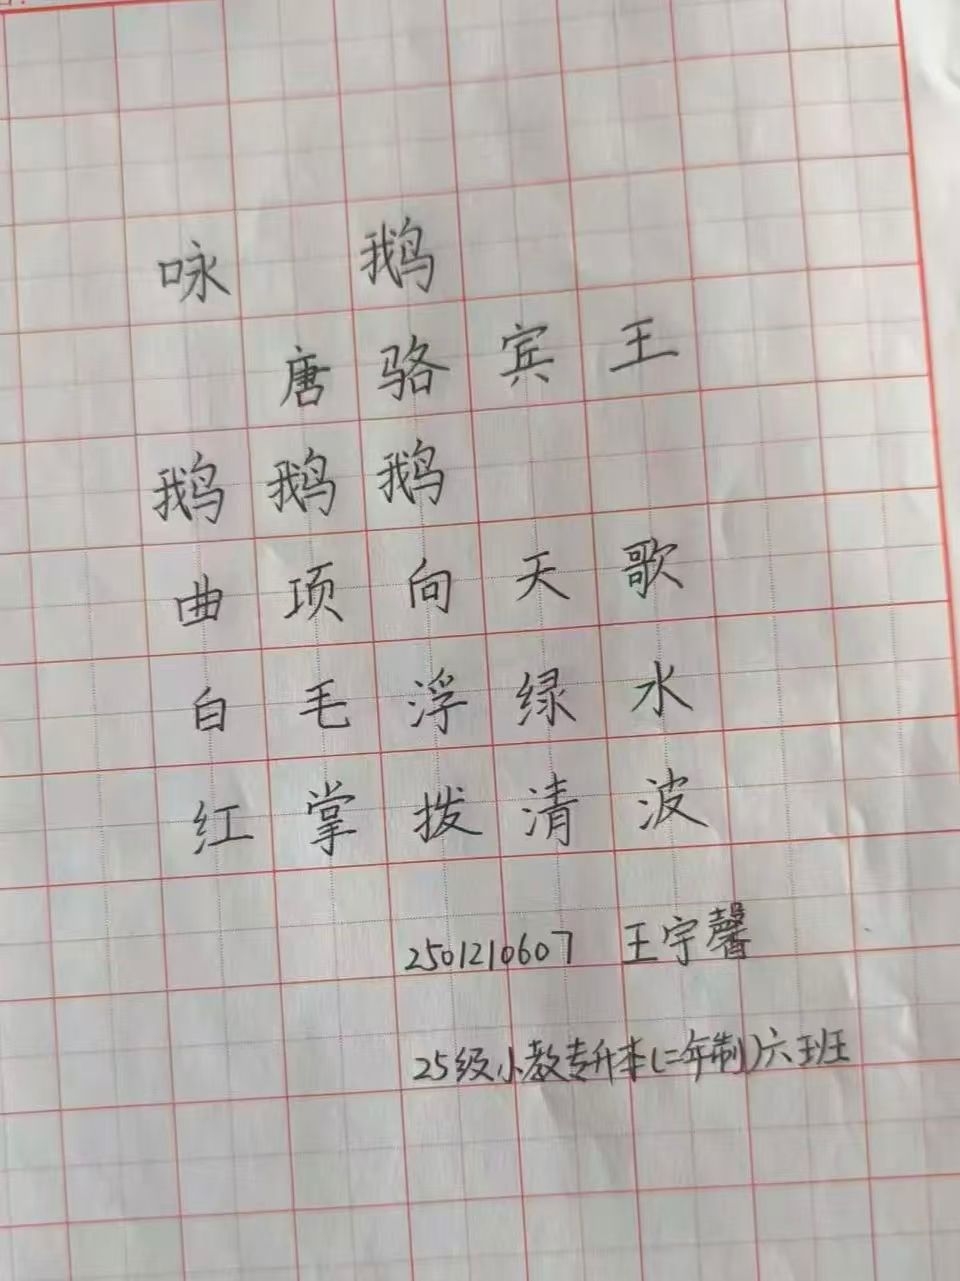 咏 鹅
唐 骆 宾 王
鹅 鹅 鹅
曲 项 向 天 歌
白 毛 浮 绿 水
红 掌 拨 清 波
2501210607 王宇馨
25级小教专升本(二年制)六班